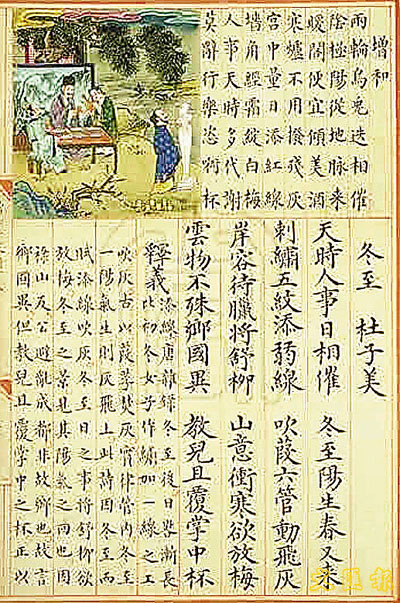 增和
兩輪烏兔迭相催
陰極陽從地脉來
暖閣便宜傾美酒
寒爐不用撥殘灰
宮中量日添紅線
墻角經霜綻白梅
人事天時多代謝
莫辭行樂恣啣杯
冬至 杜子美
天時人事日相催 冬至陽生春又來
刺繡五紋添弱線 吹葭六管動飛灰
岸容待臘將舒柳 山意衝寒欲放梅
雲物不殊鄉國異 教兒且覆掌中杯
釋義 添線唐雜録冬至後日晷漸長
比初冬女子作繡加一線之工
吹灰古以葭莩焚灰實律管内冬至
一陽氣生則灰飛上此詩因冬至而
賦添線吹灰冬至日之事將舒柳欲
放梅冬至之景見其陽氣之回也因
祿山反公避亂成都非故鄉也故言
鄉國異但教兒且覆掌中之杯正以